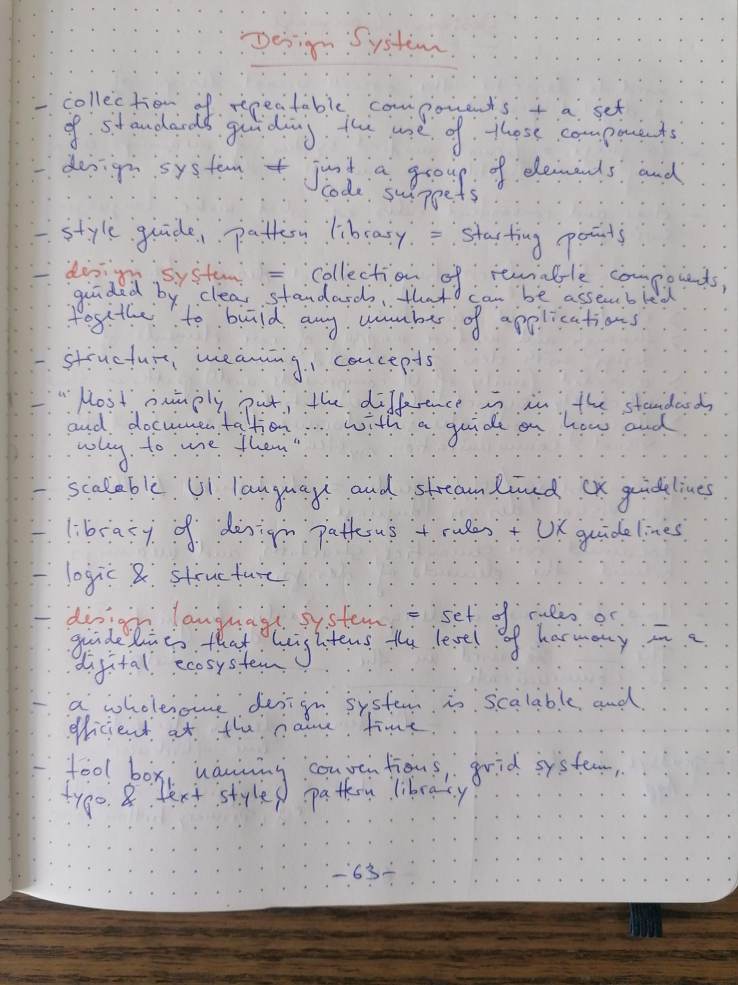 Design System
- collection of repeatable components + a set
of standards guiding the use of those components
- design system ≠ just a group of elements and
code snippets
- style guide, pattern library = starting points
- design system = collection of reusable components,
guided by clear standards, that can be assembled
together to build any number of applications
- structure, meaning, concepts
- "Most simply put, the difference is in the standards
and documentation ... with a guide on how and
why to use them"
- scalable UI language and streamlined UX guidelines
- library of design patterns + rules + UX guidelines
- logic & structure
- design language system = set of rules or
guidelines that heightens the level of harmony in a
digital ecosystem
- a wholesome design system is scalable and
efficient at the same time
- tool box, naming conventions, grid system,
typo & text styles, pattern library
- 63 -